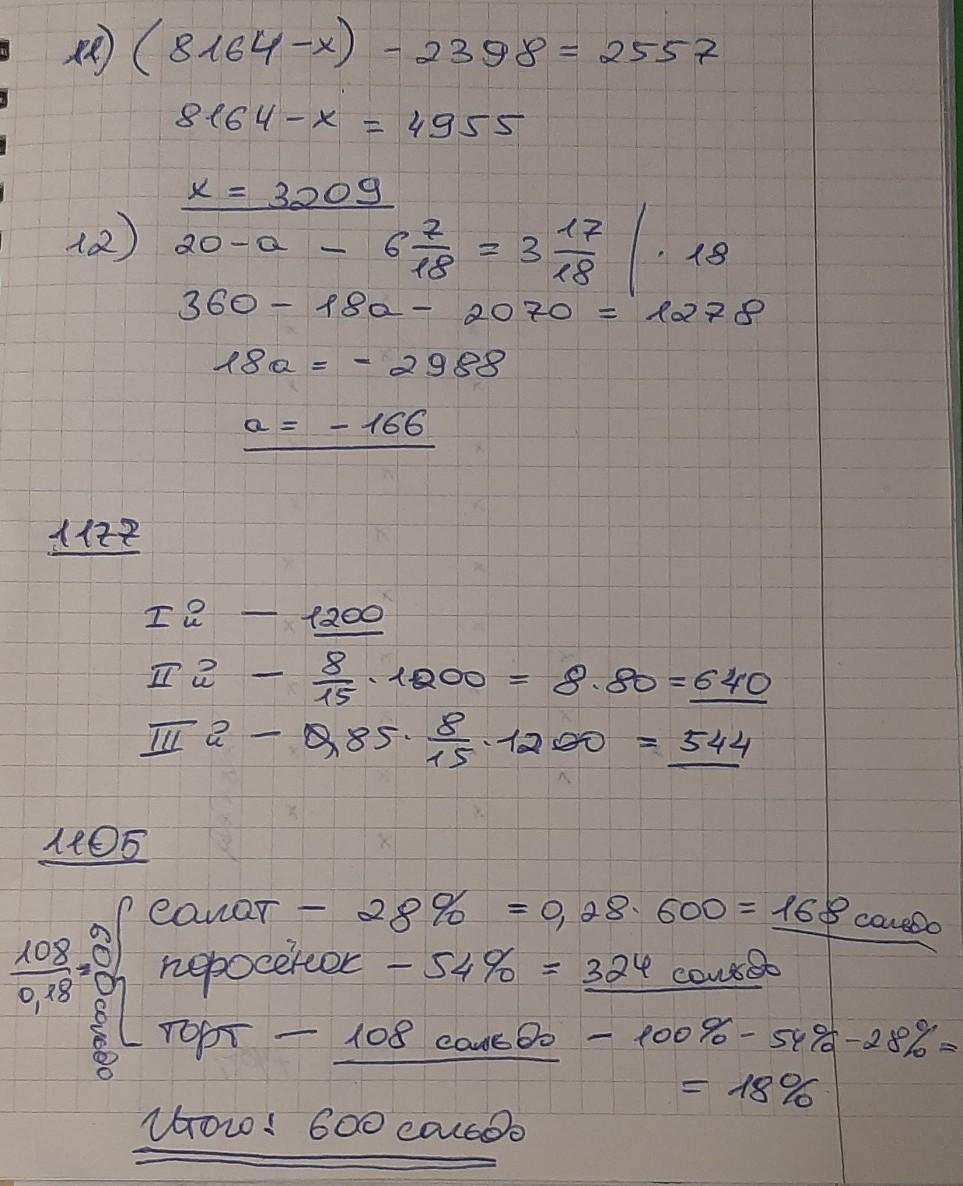 11) (8164 - x) - 2398 = 2557
8164 - x = 4955
x = 3209
12) 20 - a - 6 7/18 = 3 17/18 | · 18
360 - 18a - 2070 = 1278
18a = - 2988
a = - 166
1177
I й — 1200
II й — 8/15 · 1200 = 8 · 80 = 640
III й — 0,85 · 8/15 · 1200 = 544
1105
салат — 28% = 0,28 · 600 = 168 сольдо
108/0,18 = 600 сольдо
поросёнок — 54% = 324 сольдо
торт — 108 сольдо — 100% - 54% - 28% =
= 18%
Итого: 600 сольдо